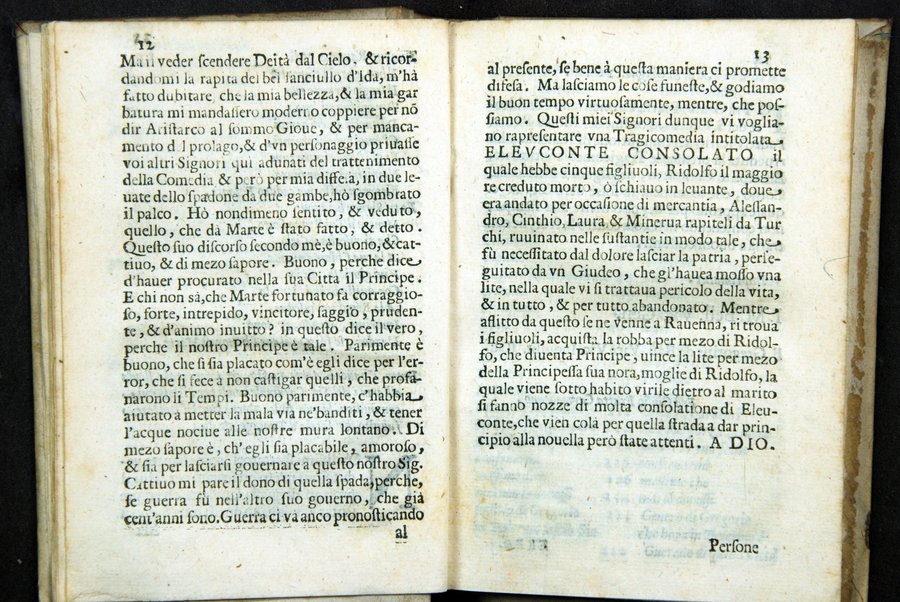 12
Ma il veder scendere Deità dal Cielo. & ricor-
dandomi la rapita del bel fanciullo d'Ida, m'hà
fatto dubitare, che la mia bellezza, & la mia gar
batura mi mandassero moderno coppiere per nõ
dir Aristarco al sommo Gioue, & per manca-
mento del prolago, & d'vn personaggio priuasse
voi altri Signori qui adunati del trattenimento
della Comedia & però per mia diffesa, in due le-
uate dello spadone da due gambe, hò sgombrato
il palco. Hò nondimeno sentito, & veduto,
quello, che da Marte è stato fatto, & detto.
Questo suo discorso secondo mè, è buono, & cat-
tiuo, & di mezo sapore. Buono, perche dice
d'hauer procurato nella sua Città il Principe.
E chi non sà, che Marte fortunato fa corraggio-
so, forte, intrepido, vincitore, saggio, pruden-
te, & d'animo inuitto? in questo dice il vero,
perche il nostro Principe è tale. Parimente è
buono, che si sia placato com'è egli dice per l'er-
ror, che si fece a non castigar quelli, che profa-
narono li Tempi. Buono parimente, c'habbia
aiutato a metter la mala via ne'banditi, & tener
l'acque nociue alle nostre mura lontano. Di
mezo sapore è, ch'egli sia placabile, amoroso,
& sia per lasciarsi gouernare a questo nostro Sig.
Cattiuo mi pare il dono di quella spada, perche,
se guerra fù nell'altro suo gouerno, che già
cent'anni sono. Guerra ci va anco pronosticando
al
13
al presente, se bene à questa maniera ci promette
difesa. Ma lasciamo le cose funeste, & godiamo
il buon tempo virtuosamente, mentre, che pos-
siamo. Questi miei Signori dunque vi voglia-
no rapresentare vna Tragicomedia intitolata
ELEVCONTE CONSOLATO il
quale hebbe cinque figliuoli, Ridolfo il maggio
re creduto morto, ò schiauo in leuante, doue
era andato per occasione di mercantia, Alessan-
dro, Cinthio, Laura, & Minerua rapiteli da Tur
chi, ruuinato nelle sustantie in modo tale, che
fù necessitato dal dolore lasciar la patria, perse-
guitato da vn Giudeo, che gl'hauea mosso vna
lite, nella quale vi si trattaua pericolo della vita,
& in tutto, & per tutto abandonato. Mentre
aflitto da questo se ne venne a Rauenna, ri troua
i figliuoli, acquista la robba per mezo di Ridol-
fo, che diuenta Principe, uince la lite per mezo
della Principessa sua nora, moglie di Ridolfo, la
quale viene sotto habito virile dietro al marito
si fanno nozze di molta consolatione di Eleu-
conte, che vien colà per quella strada a dar prin-
cipio alla nouella però state attenti. A DIO.
Persone